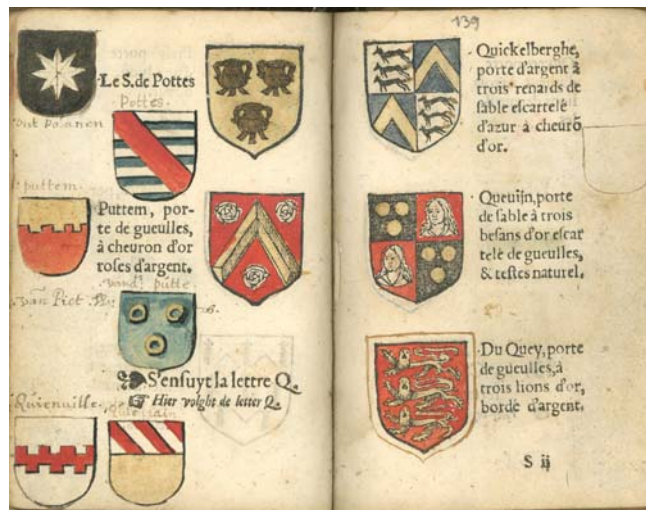 ·Le S. de Pottes
Pottes.
out polanen
puttem.
Puttem, por-
te de gueulles,
à cheuron d'or
roses d'argent.
vand' putte
van Piet
·S'ensuyt la lettre Q.
Hier volght de letter Q.
Quvenuille.
139
·Quickelberghe,
porte d'argent à
trois renards de
sable escartelé
d'azur à cheurō
d'or.
·Queuijn, porte
de sable à trois
besans d'or escar
telé de gueulles,
& testes naturel.
·Du Quey, porte
de gueulles, à
trois lions d'or,
bordé d'argent.
S ij